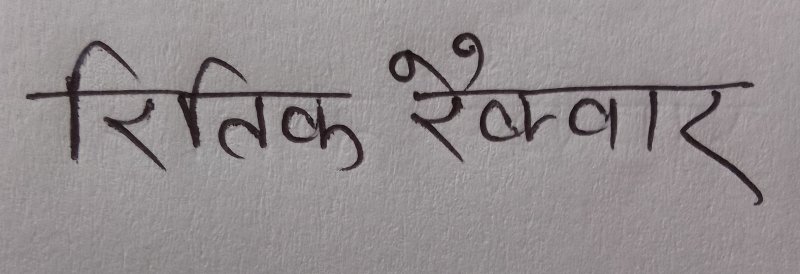 रितिक रैक्वार